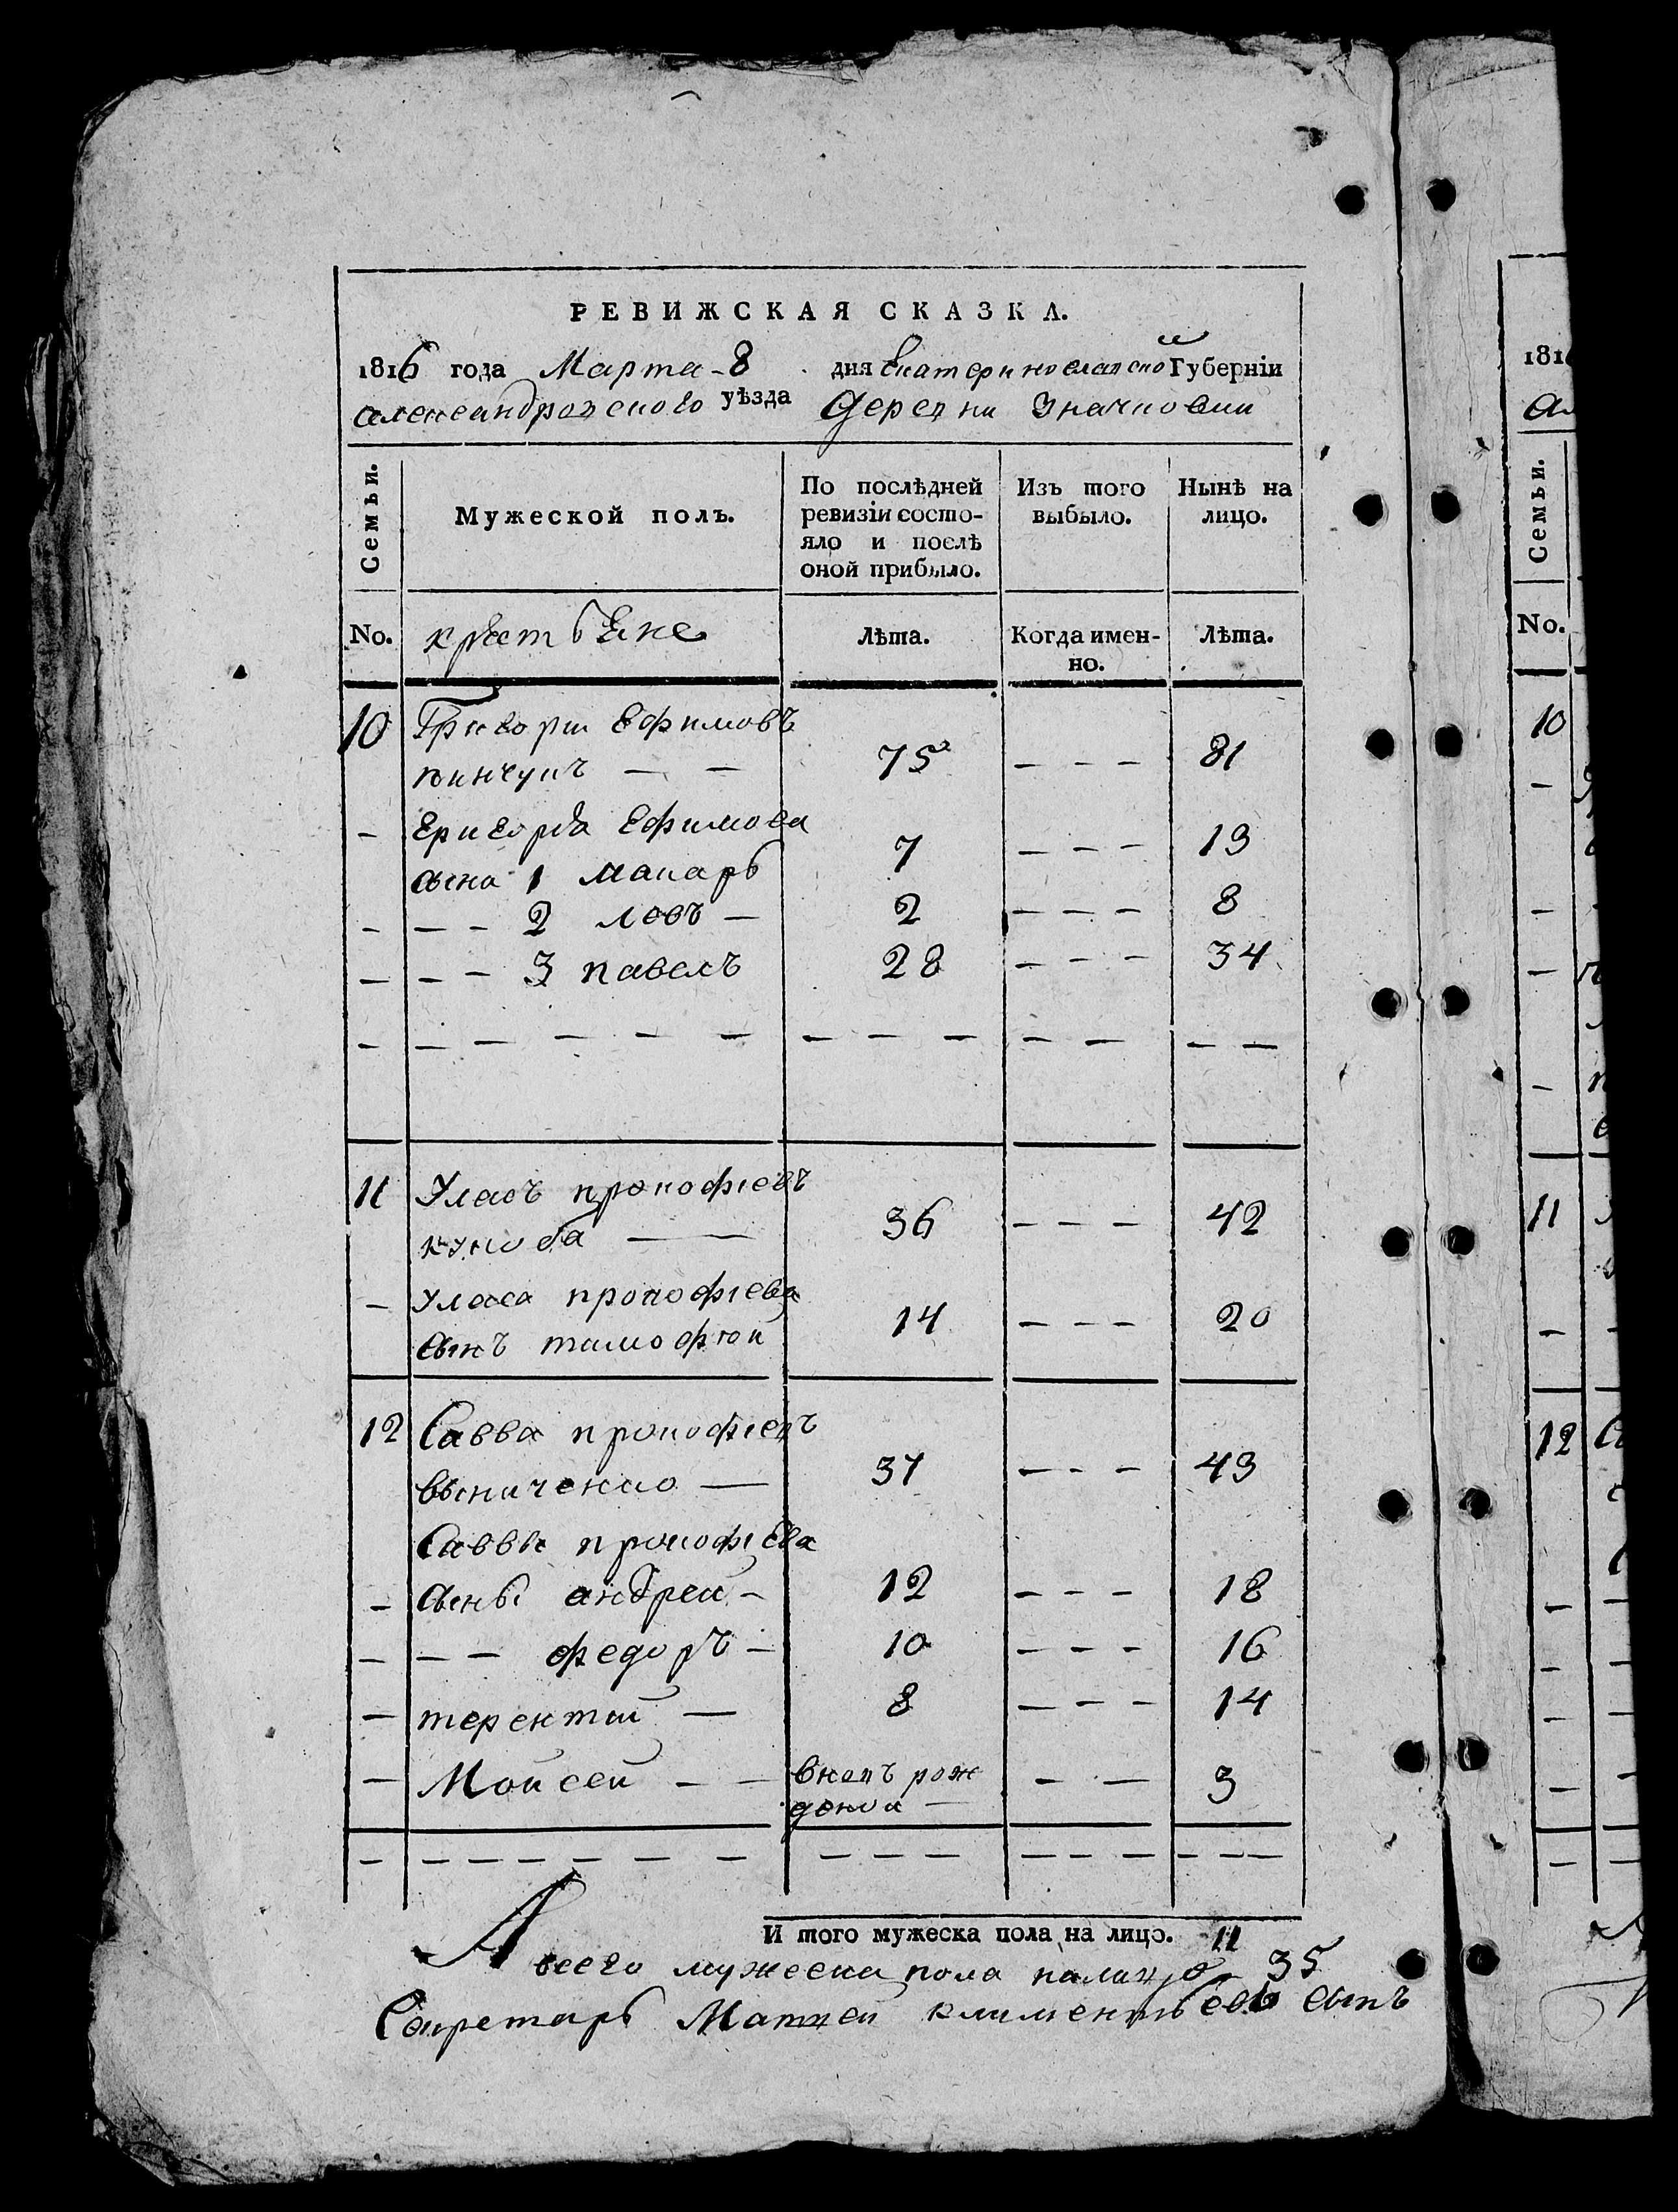 РЕВИЖСКАЯ СКАЗКА.
1816 года Марта - 8 дня Екатеринославской Губерніи
Александровского уѣзда Деревни Значковки
Семьи. Мужеской полъ. По послѣдней ревизіи состо-яло и послѣ оной прибыло. Изъ того выбыло. Нынѣ на лицо.
No. крестьяне Лѣта. Когда имен-но. Лѣта.
10 Григори Ефимовъ
пинчукъ — — 75 - - - 81
- Григорья Ефимова
сына 1 макаръ 7 - - - 13
- - - 2 левъ - 2 - - - 8
- - - 3 павелъ 28 - - - 34
- - - - - - - - - - - - -
11 Уласъ прокофіевъ
кукоба — 36 - - - 42
- Уласа прокофіева
сынъ тимофей 14 - - - 20
12 Савва прокофіевъ
37 - - - 43
Саввы прокофіева
- сыны андрей - 12 - - - 18
- - - федоръ - 10 - - - 16
- терентий — 8 - - - 14
- Мойсей - - вновъ рож
дения — - - - 3
- - - - - - - - - - - - - - - -
И того мужеска пола на лицо. 11
А всего мужеска пола налицо 35
Секретарь Матвей климентьевъ сынъ
1816
Ал
Семьи.
No.
10
11
12 Са